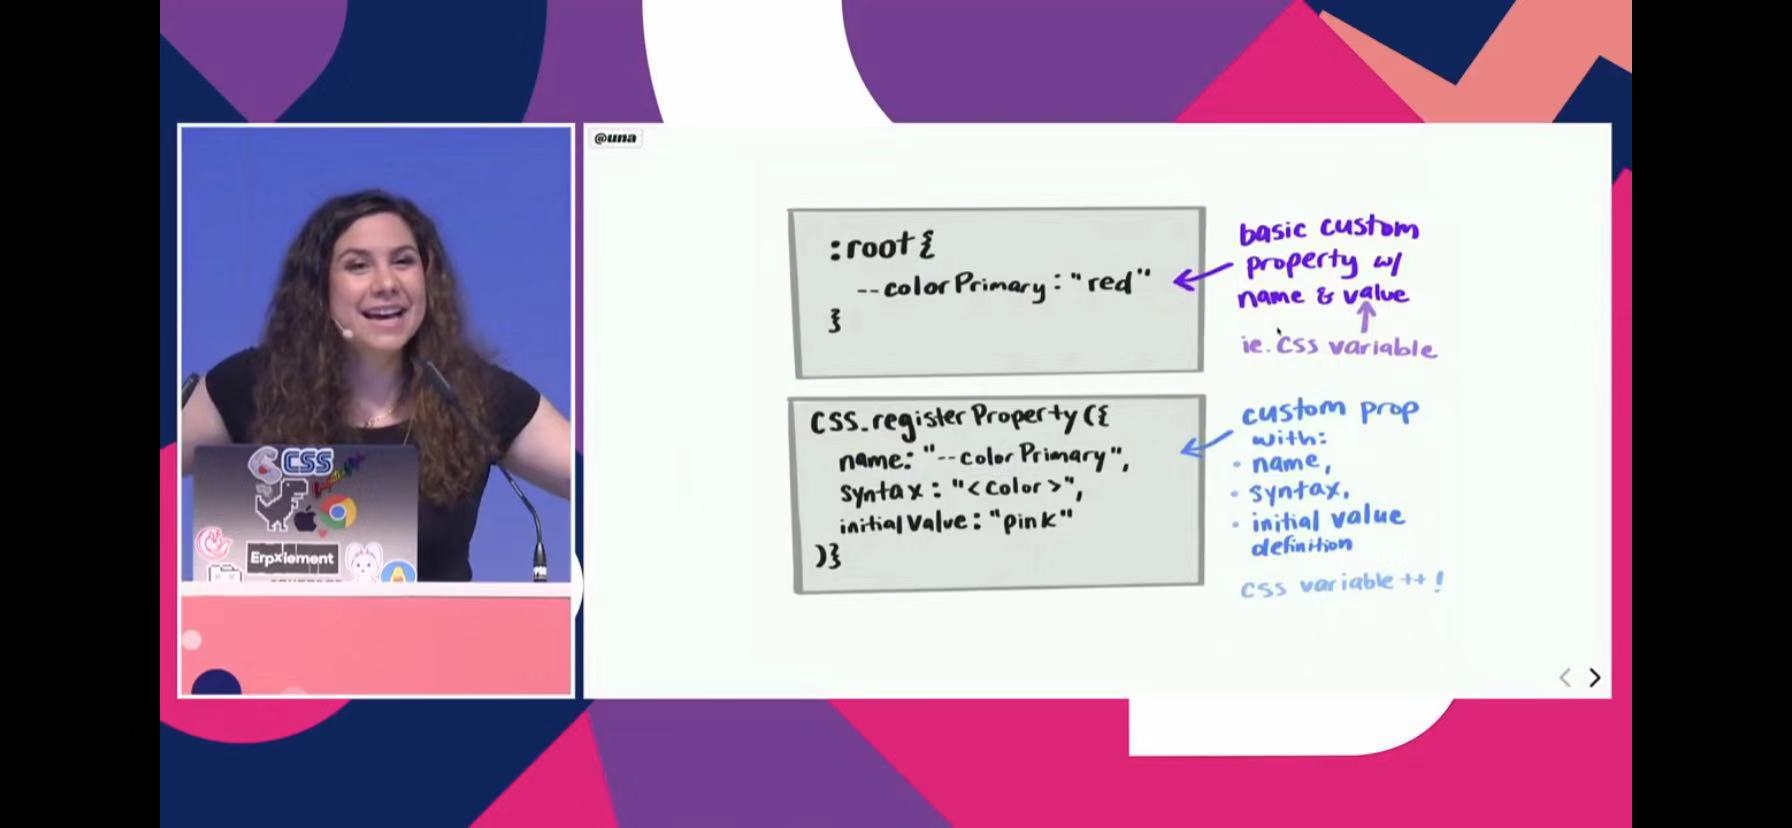 @una
:root{
--colorPrimary: "red"
}
basic custom
property w/
name & value
ie. CSS variable
CSS.registerProperty({
name: "--colorPrimary",
syntax: "<color>",
initialValue: "pink"
)}
custom prop
with:
• name,
• syntax,
• initial value
definition
css variable++!
CSS
Erpxlement